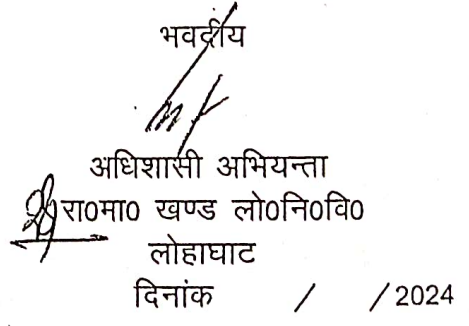 भवदीय
अधिशासी अभियन्ता
रा0मा0 खण्ड लो0नि0वि0
लोहाघाट
दिनांक / / 2024